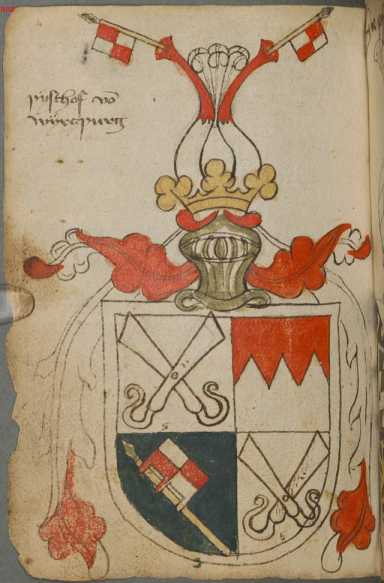 pischof vō
würczpurg